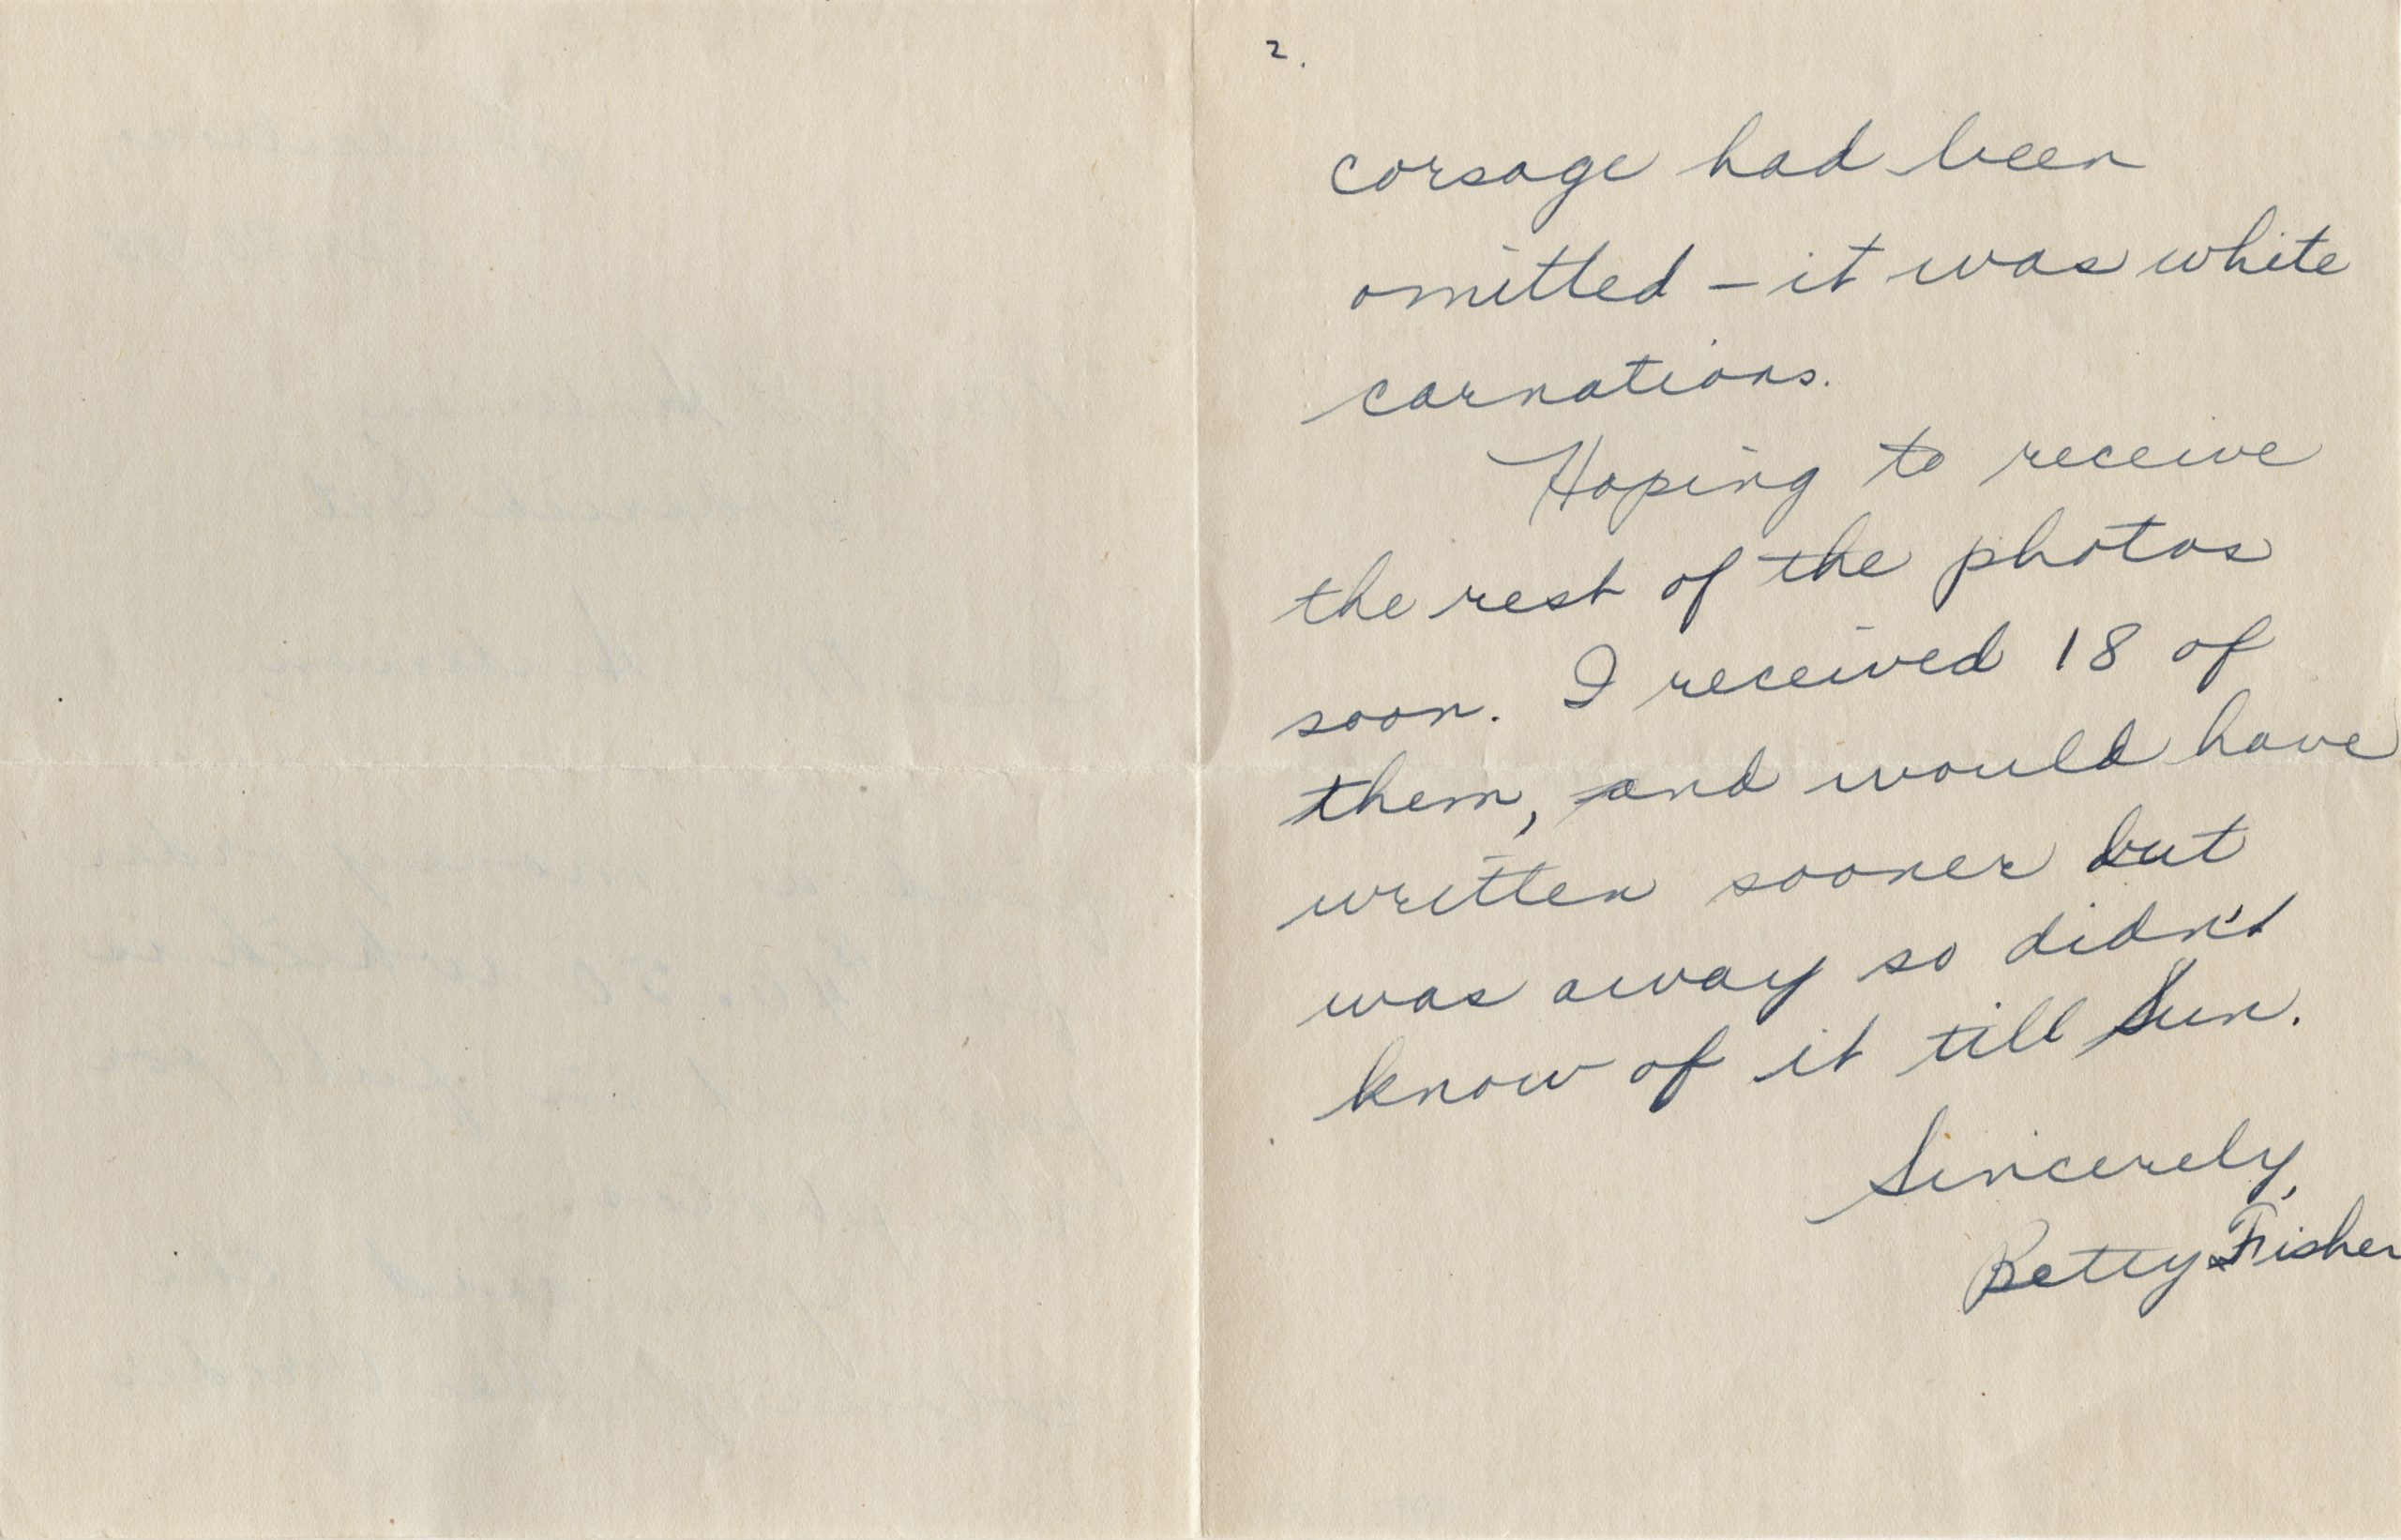 2.
corsage had been
omitted – it was white
carnations.
Hoping to receive
the rest of the photos
soon. I received 18 of
them, and would have
written sooner but
was away so didn't
know of it till Sun.
Sincerely,
Betty Fisher